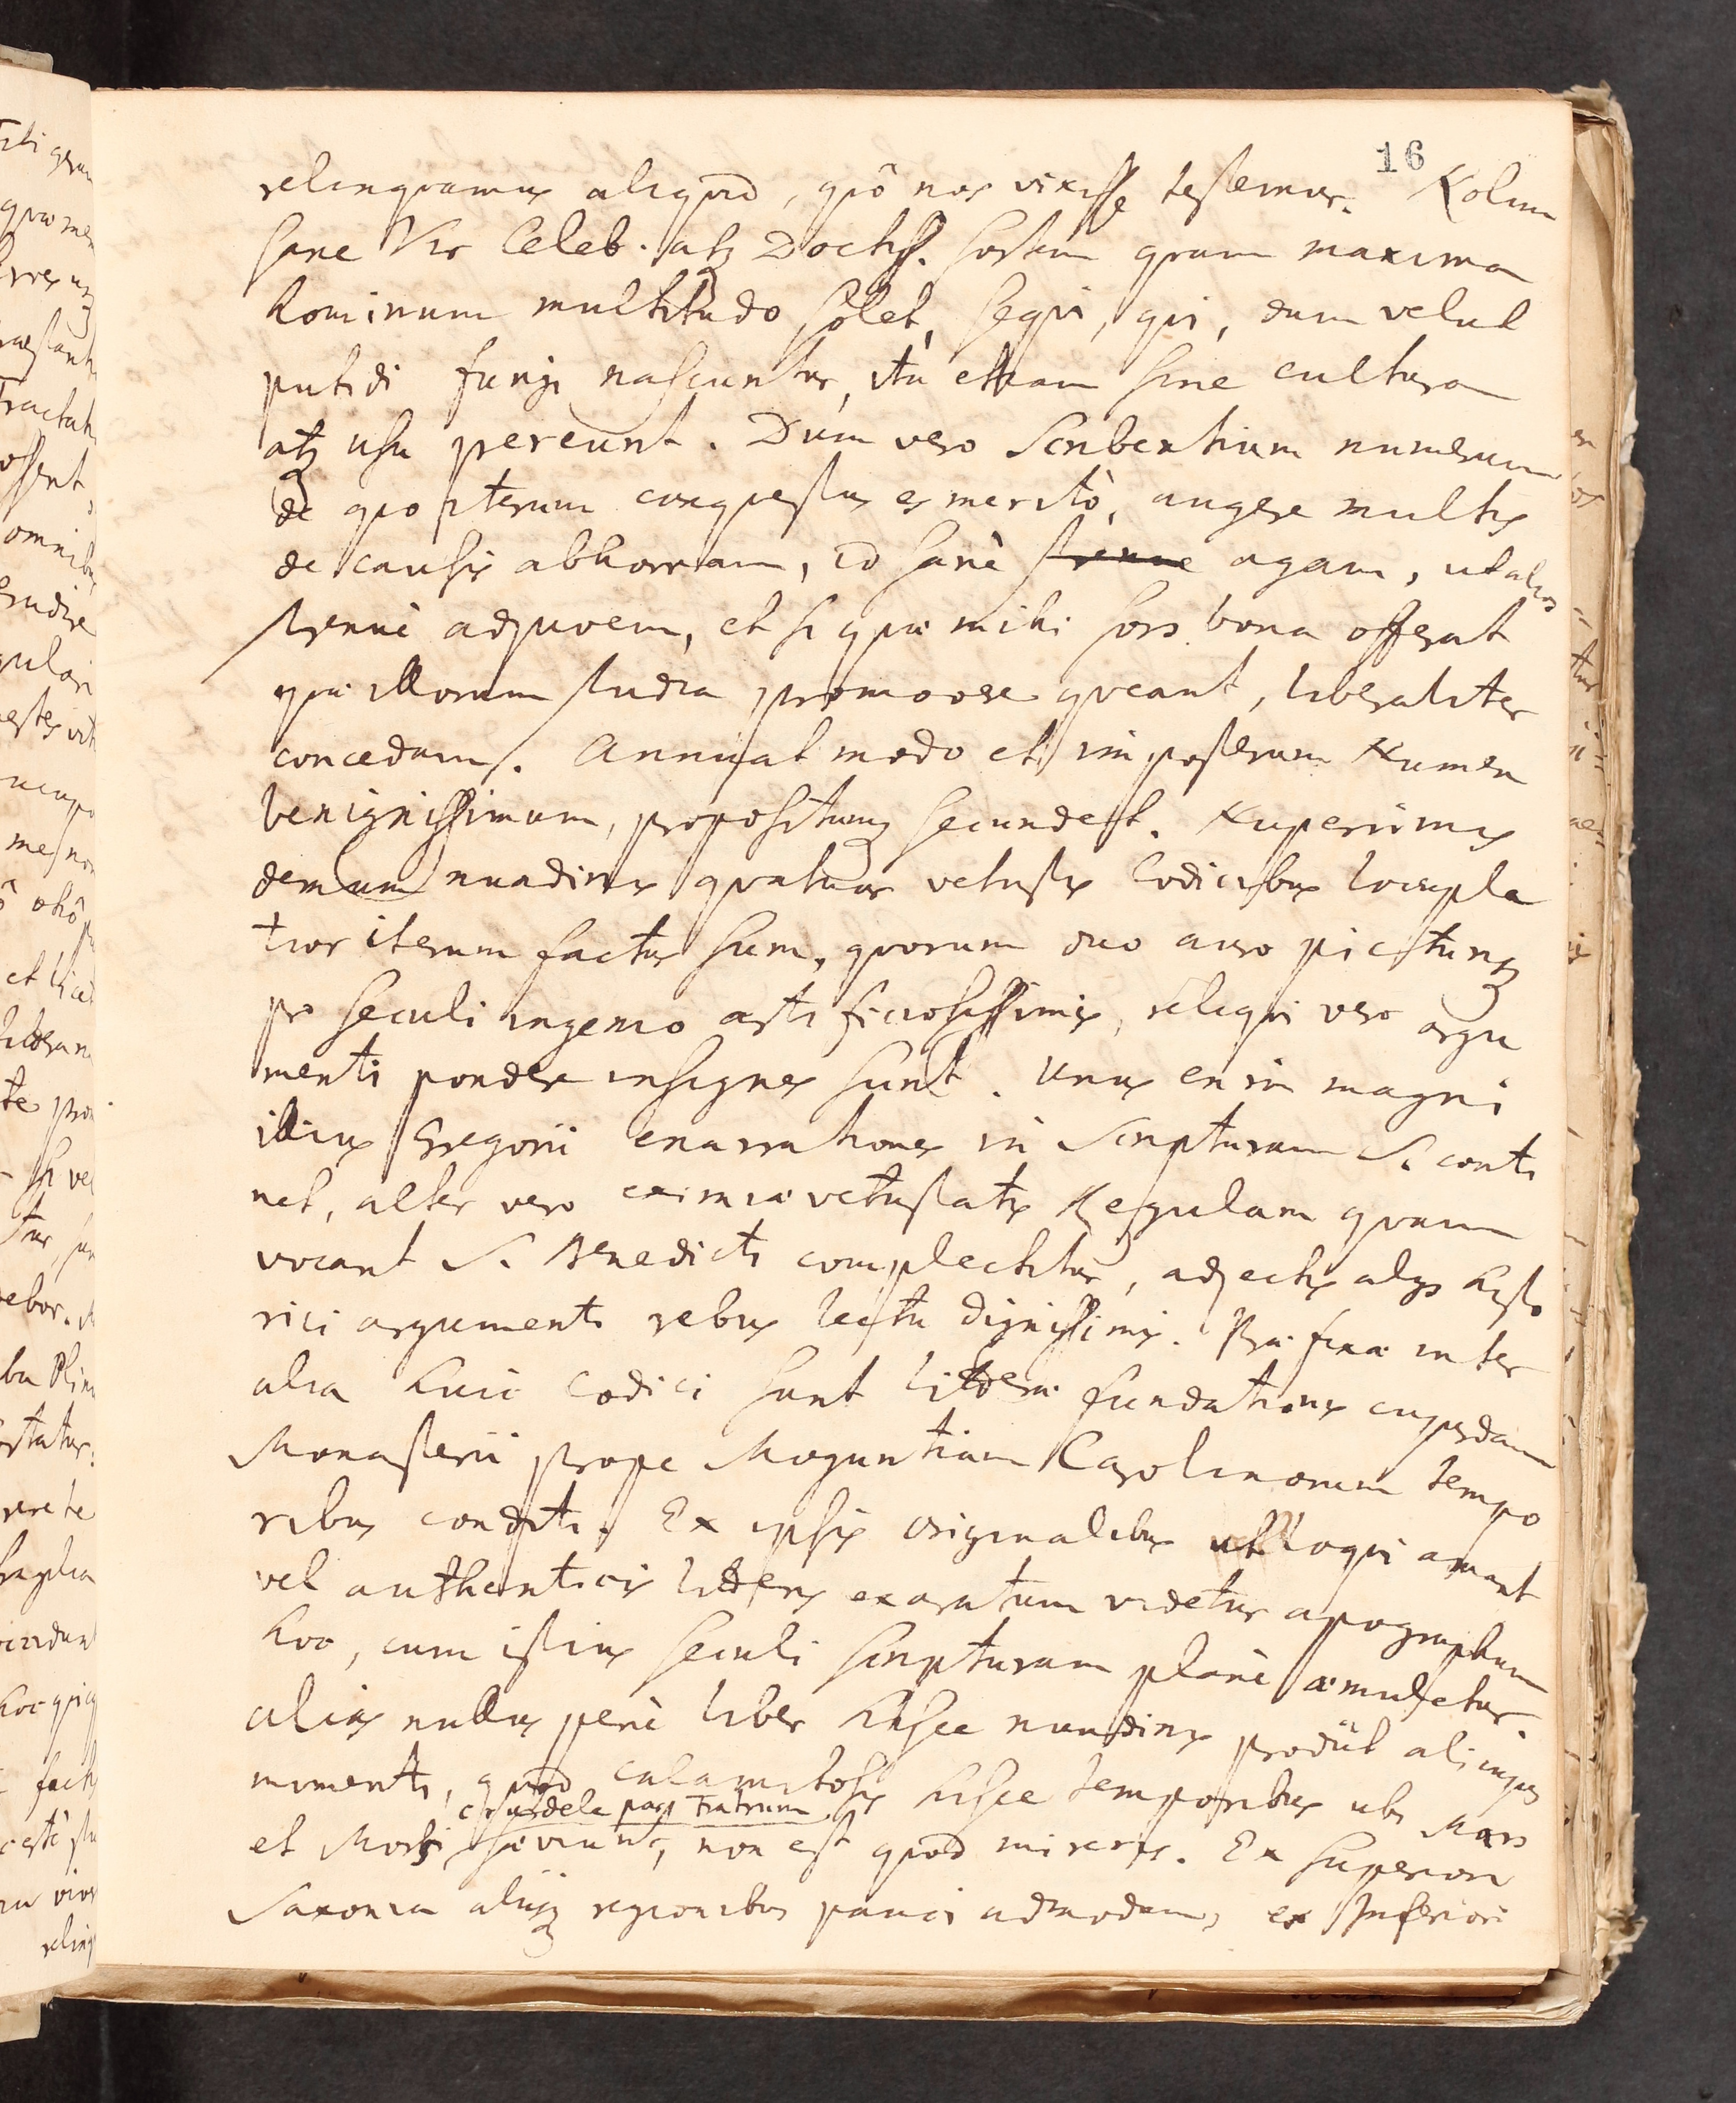 16
relinquamus aliquid, quô nos vixisse testemur. Nolim
sane Vir Celeb. atq Doctiss. sortem quam maxima
hominum multitudo solet, sequi, qui, dum velut
putidi fungi nascuntur, ita etiam sine cultura
atq usu pereunt. Dum vero Scribentium numerum
de quo iterum conquestus es meritò, augere multis
de causis abhorream, id sanè strenue agam, ut alios
strenuè adjuvem, et si quæ mihi sors bona offerat
quæ illorum studia promovere queant, liberaliter
concedam. Annuat modo et in posterum Numen
benignissimum, propositumq secundet. Nuperrimis
demum nundinis quatuor vetustis Codicibus locuple
tior iterum factus sum, quorum duo auro picturisq
pro seculi ingenio artificiosissimis, reliqui vero argu
menti pondere insignes sunt. Unus enim magni
illius Gregorii enarrationes in Scripturam S. conti
net, alter vero eximiæ vetustatis Regulam quam
vocant S. Benedicti complectitur, adjectis alijs histo
rici argumenti rebus lectu dignissimis. Præfixæ inter
alia huic Codici sunt litteræ fundationis cujusdam
Monasterii prope Moguntiam Carolinorum tempo
ribus conditi. Ex ipsis originalibus ut loqui amant
vel authenticis litteris exaratum videtur apographum
hoc, cum istius seculi scripturam planè æmuletur.
alias nullus penè liber hisce nundinis prodiit alicujus
momenti, quod calamitosis hisce temporibus ubi Mars
crudele par fratrum
et Morbi sæviunt, non est quod mireris. Ex Superiori
Saxonia aliisq regionibus pauci admodum, ex Inferiori